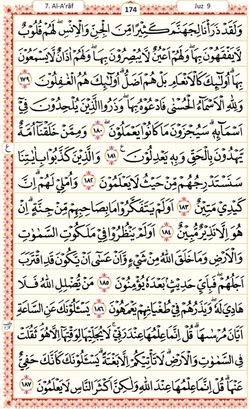 7. Al-A'râf 174 Juz 9
وَلَقَدْ ذَرَاْنَا لِجَهَنَّمَ كَثِيْرًا مِّنَ الْجِنِّ وَالْاِنْسِ لَهُمْ قُلُوْبٌ
لَّا يَفْقَهُوْنَ بِهَا وَلَهُمْ اَعْيُنٌ لَّا يُبْصِرُوْنَ بِهَا وَلَهُمْ اٰذَانٌ لَّا يَسْمَعُوْنَ
بِهَا اُولٰٓئِكَ كَالْاَنْعَامِ بَلْ هُمْ اَضَلُّ اُولٰٓئِكَ هُمُ الْغٰفِلُوْنَ ۱۷۹
وَلِلّٰهِ الْاَسْمَآءُ الْحُسْنٰى فَادْعُوْهُ بِهَا وَذَرُوا الَّذِيْنَ يُلْحِدُوْنَ فِيْٓ
اَسْمَآئِهٖ سَيُجْزَوْنَ مَا كَانُوْا يَعْمَلُوْنَ ۱۸۰ وَمِمَّنْ خَلَقْنَآ اُمَّةٌ
يَّهْدُوْنَ بِالْحَقِّ وَبِهٖ يَعْدِلُوْنَ ۱۸۱ وَالَّذِيْنَ كَذَّبُوْا بِاٰيٰتِنَا
سَنَسْتَدْرِجُهُمْ مِّنْ حَيْثُ لَا يَعْلَمُوْنَ ۱۸۲ وَاُمْلِيْ لَهُمْ اِنَّ
كَيْدِيْ مَتِيْنٌ ۱۸۳ اَوَلَمْ يَتَفَكَّرُوْا مَا بِصَاحِبِهِمْ مِّنْ جِنَّةٍ اِنْ
هُوَ اِلَّا نَذِيْرٌ مُّبِيْنٌ ۱۸۴ اَوَلَمْ يَنْظُرُوْا فِيْ مَلَكُوْتِ السَّمٰوٰتِ
وَالْاَرْضِ وَمَا خَلَقَ اللّٰهُ مِنْ شَيْءٍ وَّاَنْ عَسٰٓى اَنْ يَّكُوْنَ قَدِ اقْتَرَبَ
اَجَلُهُمْ فَبِاَيِّ حَدِيْثٍۢ بَعْدَهٗ يُؤْمِنُوْنَ ۱۸۵ مَنْ يُّضْلِلِ اللّٰهُ فَلَا
هَادِيَ لَهٗ وَيَذَرُهُمْ فِيْ طُغْيَانِهِمْ يَعْمَهُوْنَ ۱۸۶ يَسْـَٔلُوْنَكَ عَنِ السَّاعَةِ
اَيَّانَ مُرْسٰىهَا قُلْ اِنَّمَا عِلْمُهَا عِنْدَ رَبِّيْ لَا يُجَلِّيْهَا لِوَقْتِهَآ اِلَّا هُوَ ثَقُلَتْ
فِى السَّمٰوٰتِ وَالْاَرْضِ لَا تَأْتِيْكُمْ اِلَّا بَغْتَةً يَسْـَٔلُوْنَكَ كَاَنَّكَ حَفِيٌّ
عَنْهَا قُلْ اِنَّمَا عِلْمُهَا عِنْدَ اللّٰهِ وَلٰكِنَّ اَكْثَرَ النَّاسِ لَا يَعْلَمُوْنَ ۱۸۷